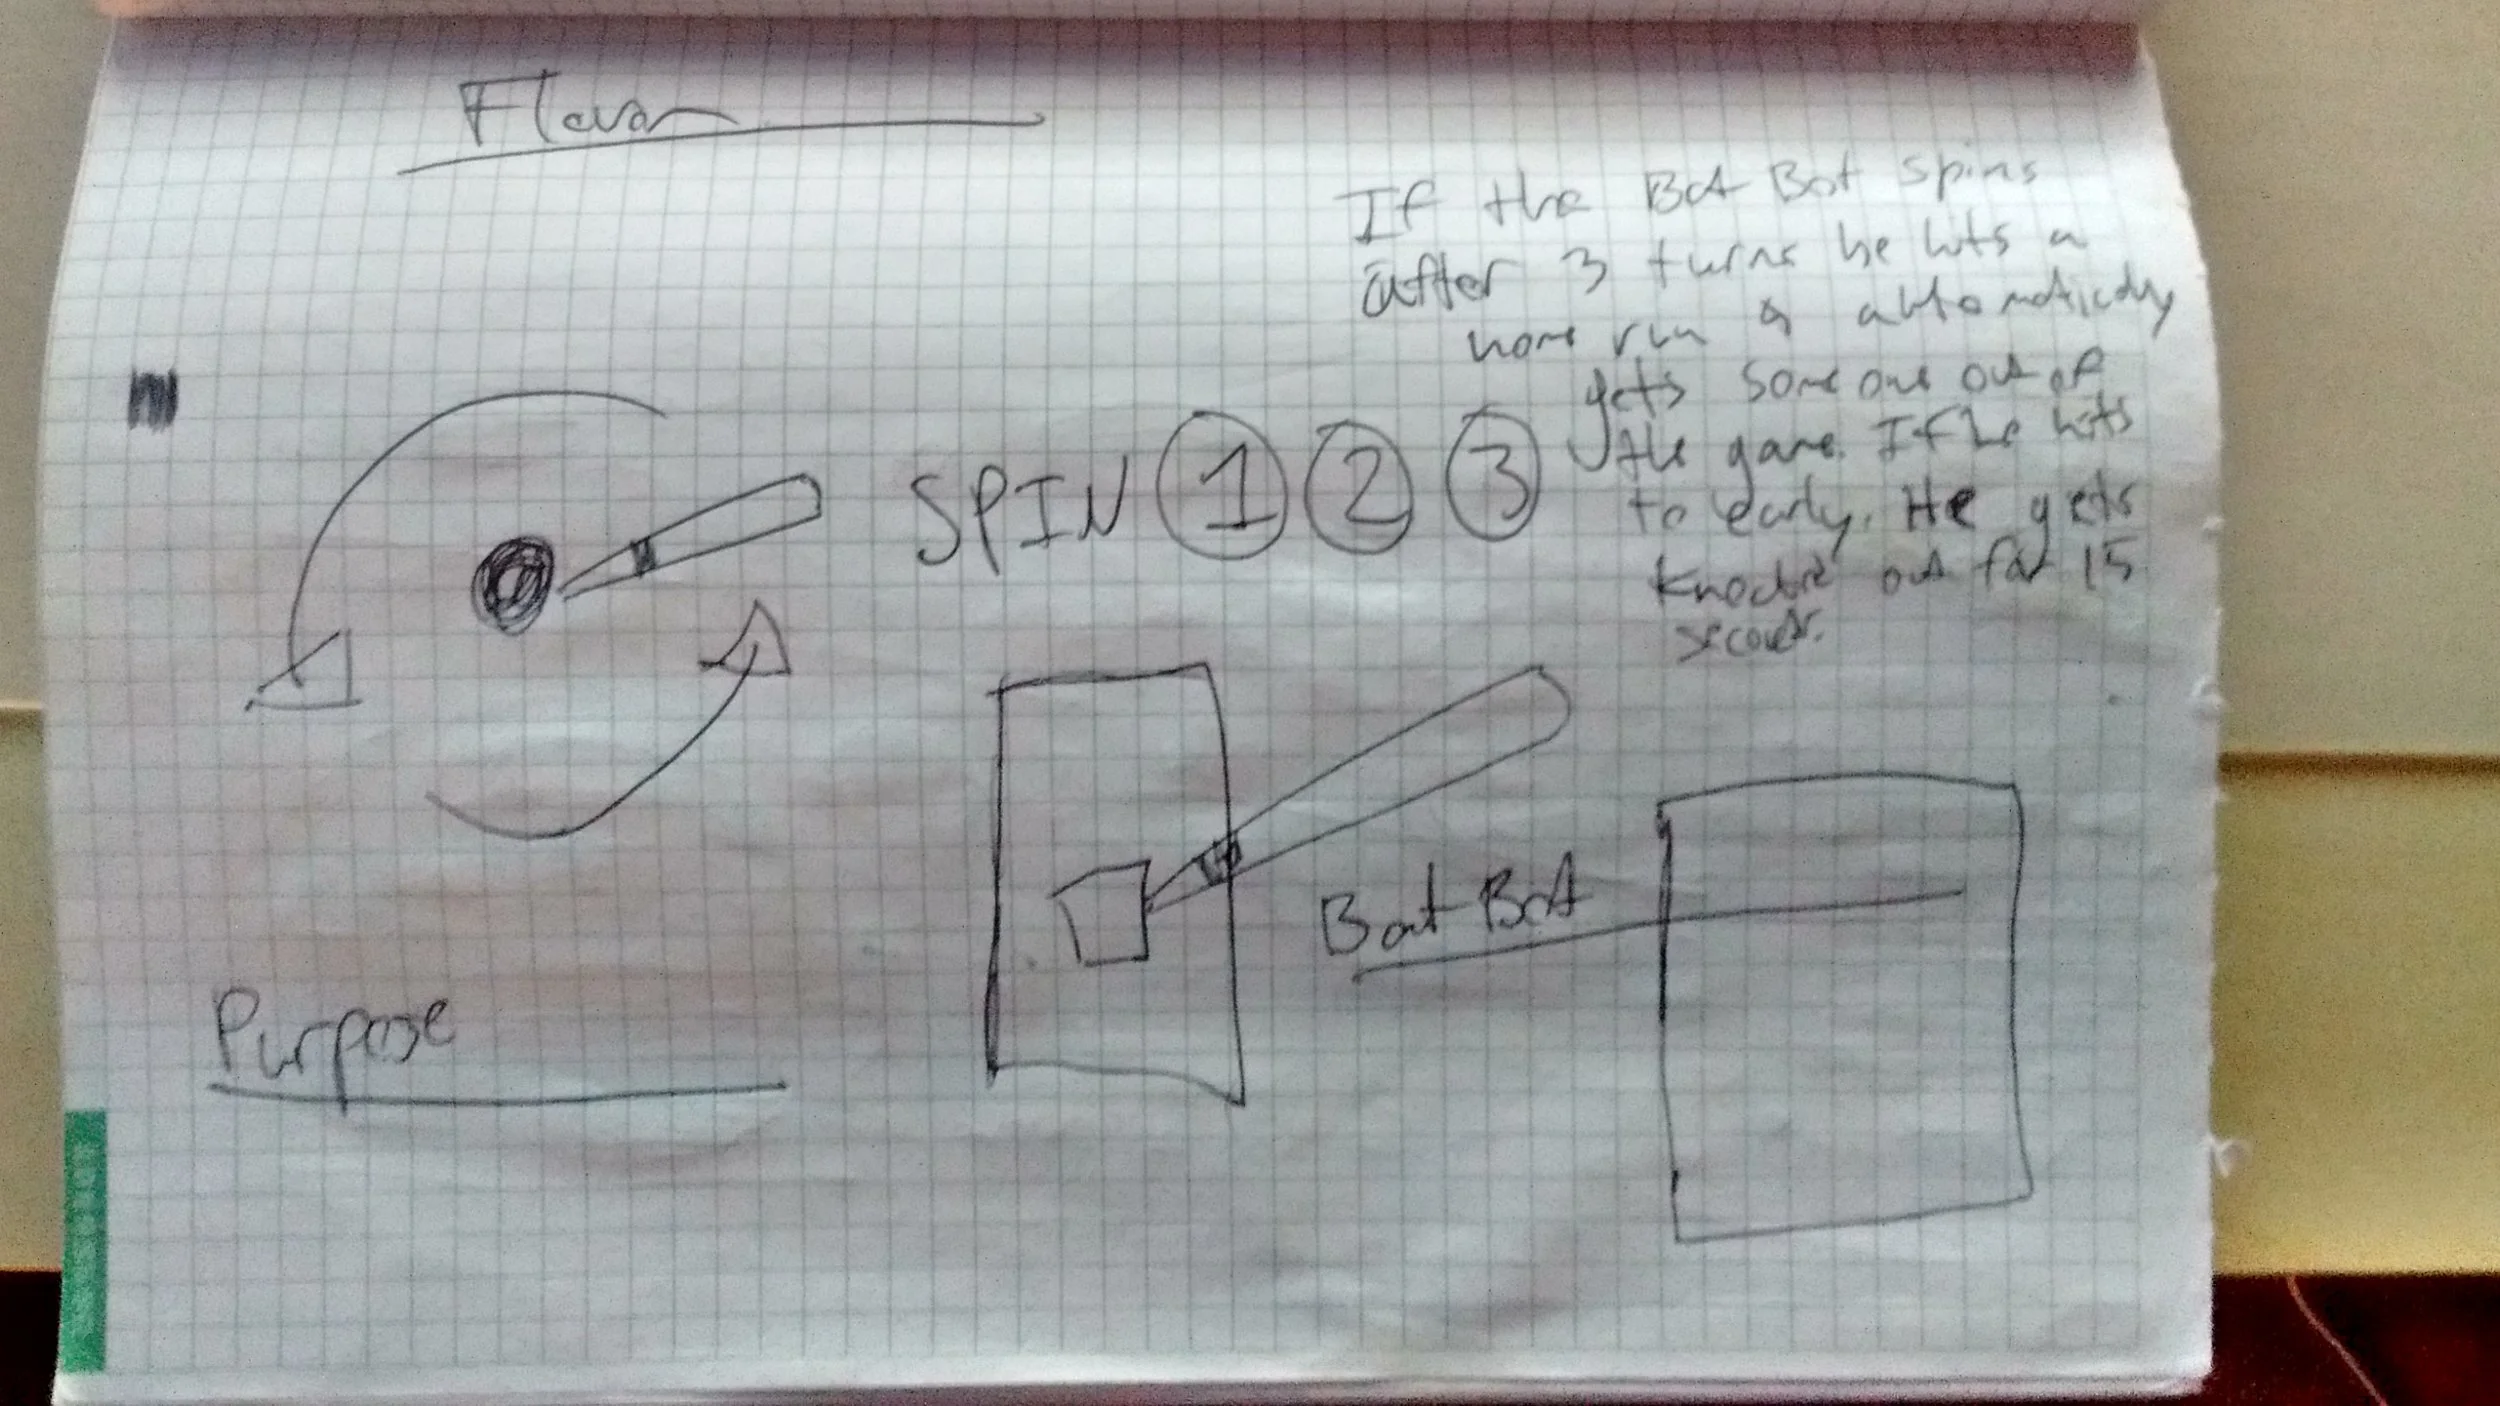 Flavor
If the Bat Bot spins
after 3 turns he hits a
home run & automatically
gets someone out of
the game. If he hits
to early. He gets
knocked out for 15
seconds.
SPIN 1 2 3
Bat Bot
Purpose